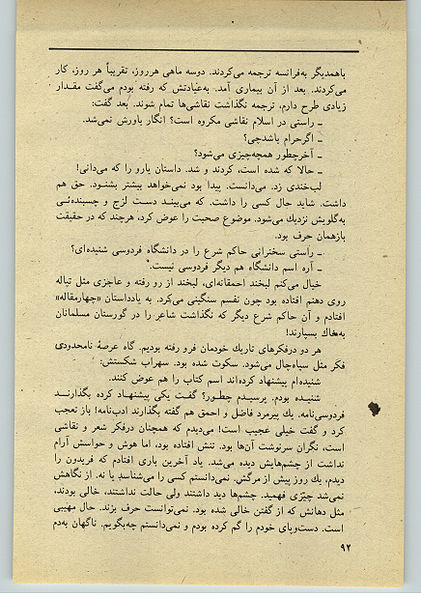 باهمدیگر به‌فرانسه ترجمه می‌کردند. دوسه ماهی هرروز، تقریباً هر روز، کار
می‌کردند. بعد از آن بیماری آمد. به‌عیادتش که رفته بودم می‌گفت مقدار
زیادی طرح دارم، ترجمه نگذاشت نقاشی‌ها تمام شوند. بعد گفت:
ـ راستی در اسلام نقاشی مکروه است؟ انگار باورش نمی‌شد.
ـ اگرحرام باشدچی؟
ـ آخرچطور همچه‌چیزی می‌شود؟
ـ حالا که شده است، کردند و شد. داستان یارو را که می‌دانی!
لب‌خندی زد. می‌دانست. پیدا بود نمی‌خواهد بیشتر بشنود. حق هم
داشت. شاید حال کسی را داشت. که می‌بیند دست لزج و چسبنده‌ئی
به‌گلویش نزدیك می‌شود. موضوع صحبت را عوض کرد، هرچند که در حقیقت
بازهمان حرف بود.
ـ راستی سخنرانی حاکم شرع را در دانشگاه فردوسی شنیده‌ای؟
ـ آره اسم دانشگاه هم دیگر فردوسی نیست.
خیال می‌کنم لبخند احمقانه‌ای، لبخند از رو رفته و عاجزی مثل تپاله
روی دهنم افتاده بود چون نفسم سنگینی می‌کرد. به یادداستان «چهارمقاله»
افتادم و آن حاکم شرع دیگر که نگذاشت شاعر را در گورستان مسلمانان
به‌خاك بسپارند!
هر دو درفکرهای تاریك خودمان فرو رفته بودیم. گاه عرصهٔ نامحدودی
فکر مثل سیاه‌چال می‌شود. سکوت شده بود. سهراب شکستش:
شنیده‌ام پیشنهاد کرده‌اند اسم کتاب را هم عوض کنند.
شنیده بودم. پرسیدم چطور؟ گفت یکی پیشنهاد کرده بگذارند
فردوسی‌نامه. یك پیرمرد فاضل و احمق هم گفته بگذارند ادب‌نامه! باز تعجب
کرد و گفت خیلی عجیب است! می‌دیدم که همچنان درفکر شعر و نقاشی
است، نگران سرنوشت آن‌ها بود. تنش افتاده بود، اما هوش و حواسش آرام
نداشت از چشمهایش دیده می‌شد. یاد آخرین باری افتادم که فریدون را
دیدم، یك روز پیش از مرگش. نمی‌دانستم کسی را می‌شناسد یا نه. از نگاهش
نمی‌شد چیزی فهمید. چشم‌ها دید داشتند ولی حالت نداشتند، خالی بودند،
مثل دهانش که از گفتن خالی شده بود. نمی‌توانست حرف بزند. حال مهیبی
است. دست‌وپای خودم را گم کرده بودم و نمی‌دانستم چه‌بگویم. ناگهان به‌دم
۹۲